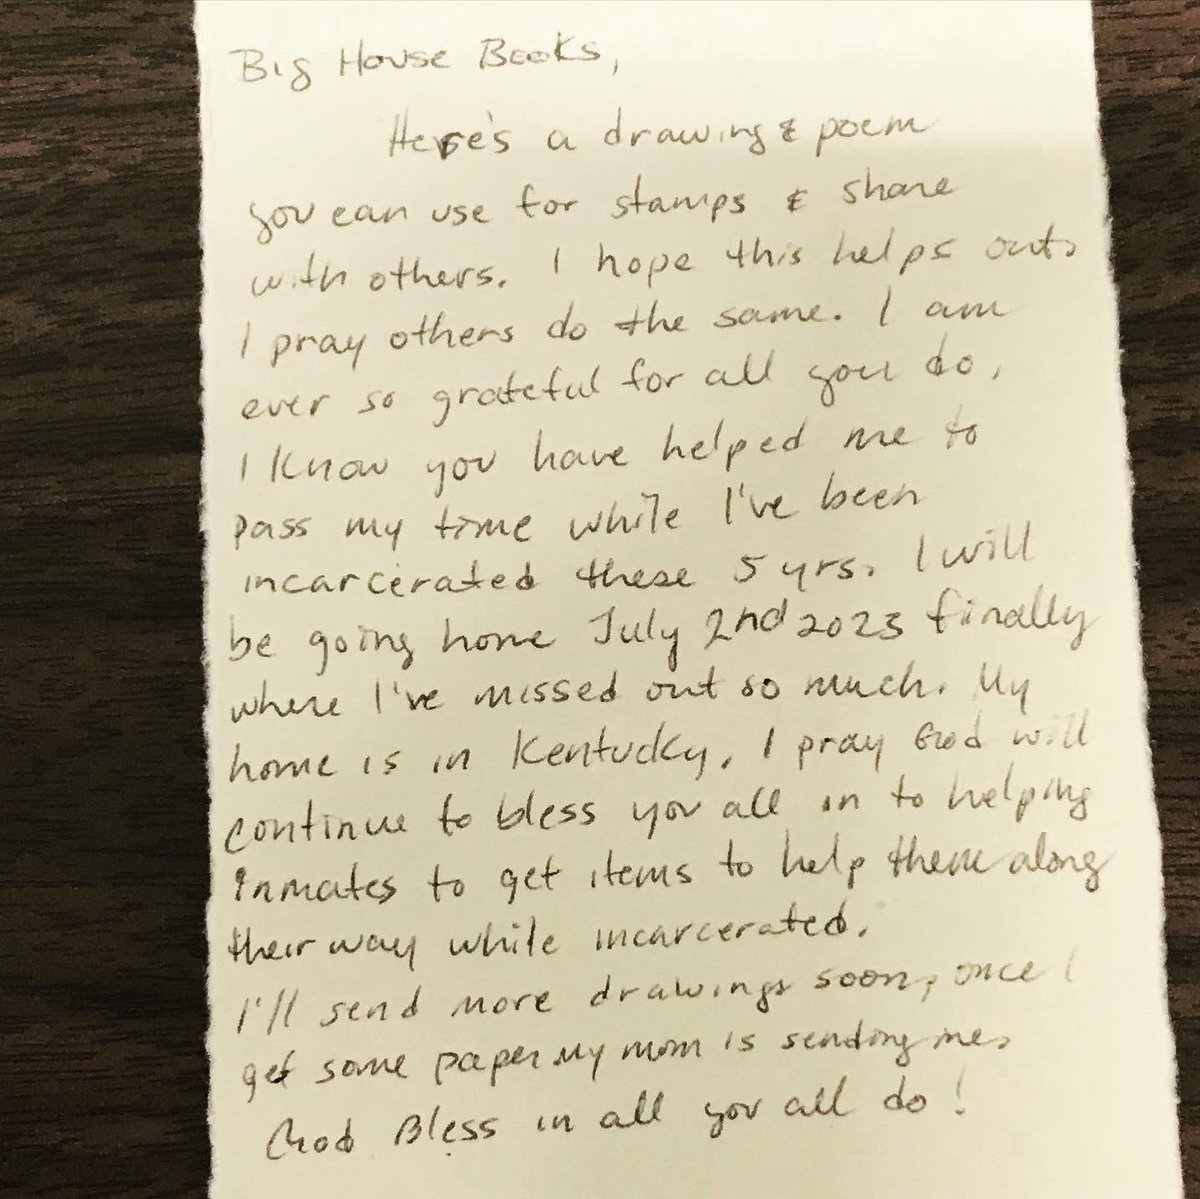 Big House Books,
Here's a drawing & poem
you can use for stamps & share
with others. I hope this helps out.
I pray others do the same. I am
ever so grateful for all you do,
I know you have helped me to
pass my time while I've been
incarcerated these 5 yrs. I will
be going home July 2nd 2023 finally
where I've missed out so much. My
home is in Kentucky. I pray God will
continue to bless you all in to helping
inmates to get items to help them along
their way while incarcerated.
I'll send more drawings soon, once I
get some paper my mom is sending me.
God Bless in all you all do!